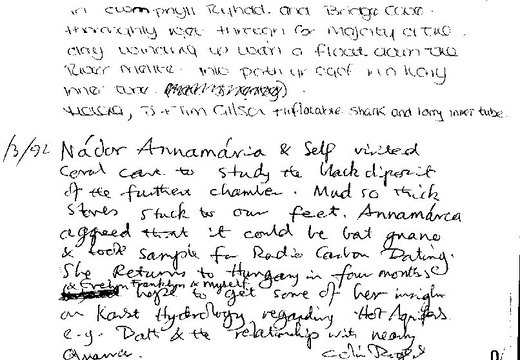 in cwmpnyll Rynad. and Bridge Cave.
thoroughly wet through for majority of the
day winding up with a float down the
River Mellte. into porth yr ogof in a lorry
inner tube.
J. & Tim Gilson + inflatable shark and lorry inner tube.
/3/92 Nádor Annamária & Self visited
Coral cave to study the black deposit
of the further chamber. Mud so thick
stones stuck to our feet. Annamárca
aggreed that it could be bat guano
& took sample for Radio Carbon Dating.
She Returns to Hungary in four months
& Evelyn Franklyn & myself
hope to get some of her insight
on Karst Hydrology regarding Hot Aquifers
e.g. Bath & the relationship with nearby